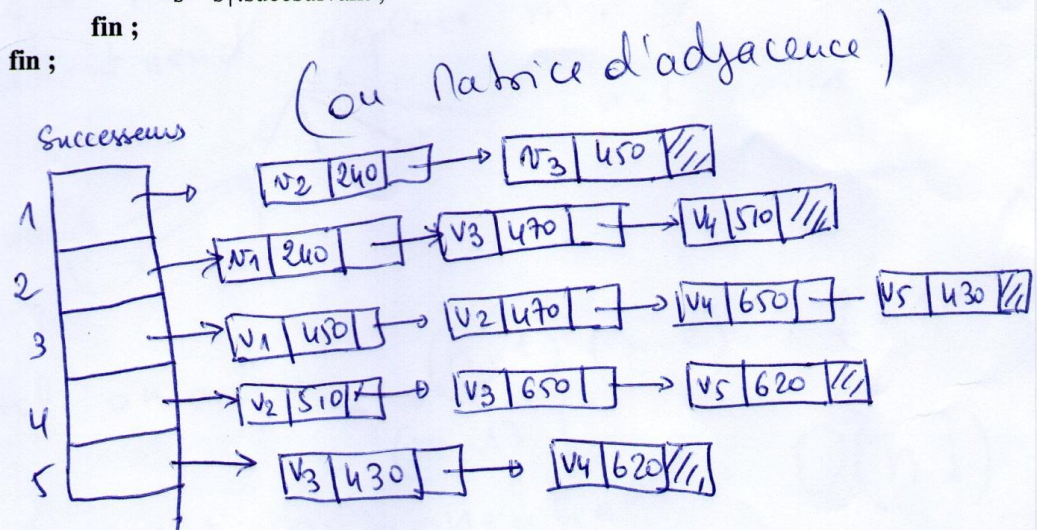 fin ;
fin ;
(ou Matrice d'adjacence)
Successeurs
1 v2 240 v3 450
2 v1 240 v3 470 v4 510
3 v1 450 v2 470 v4 650 v5 430
4 v2 510 v3 650 v5 620
5 v3 430 v4 620